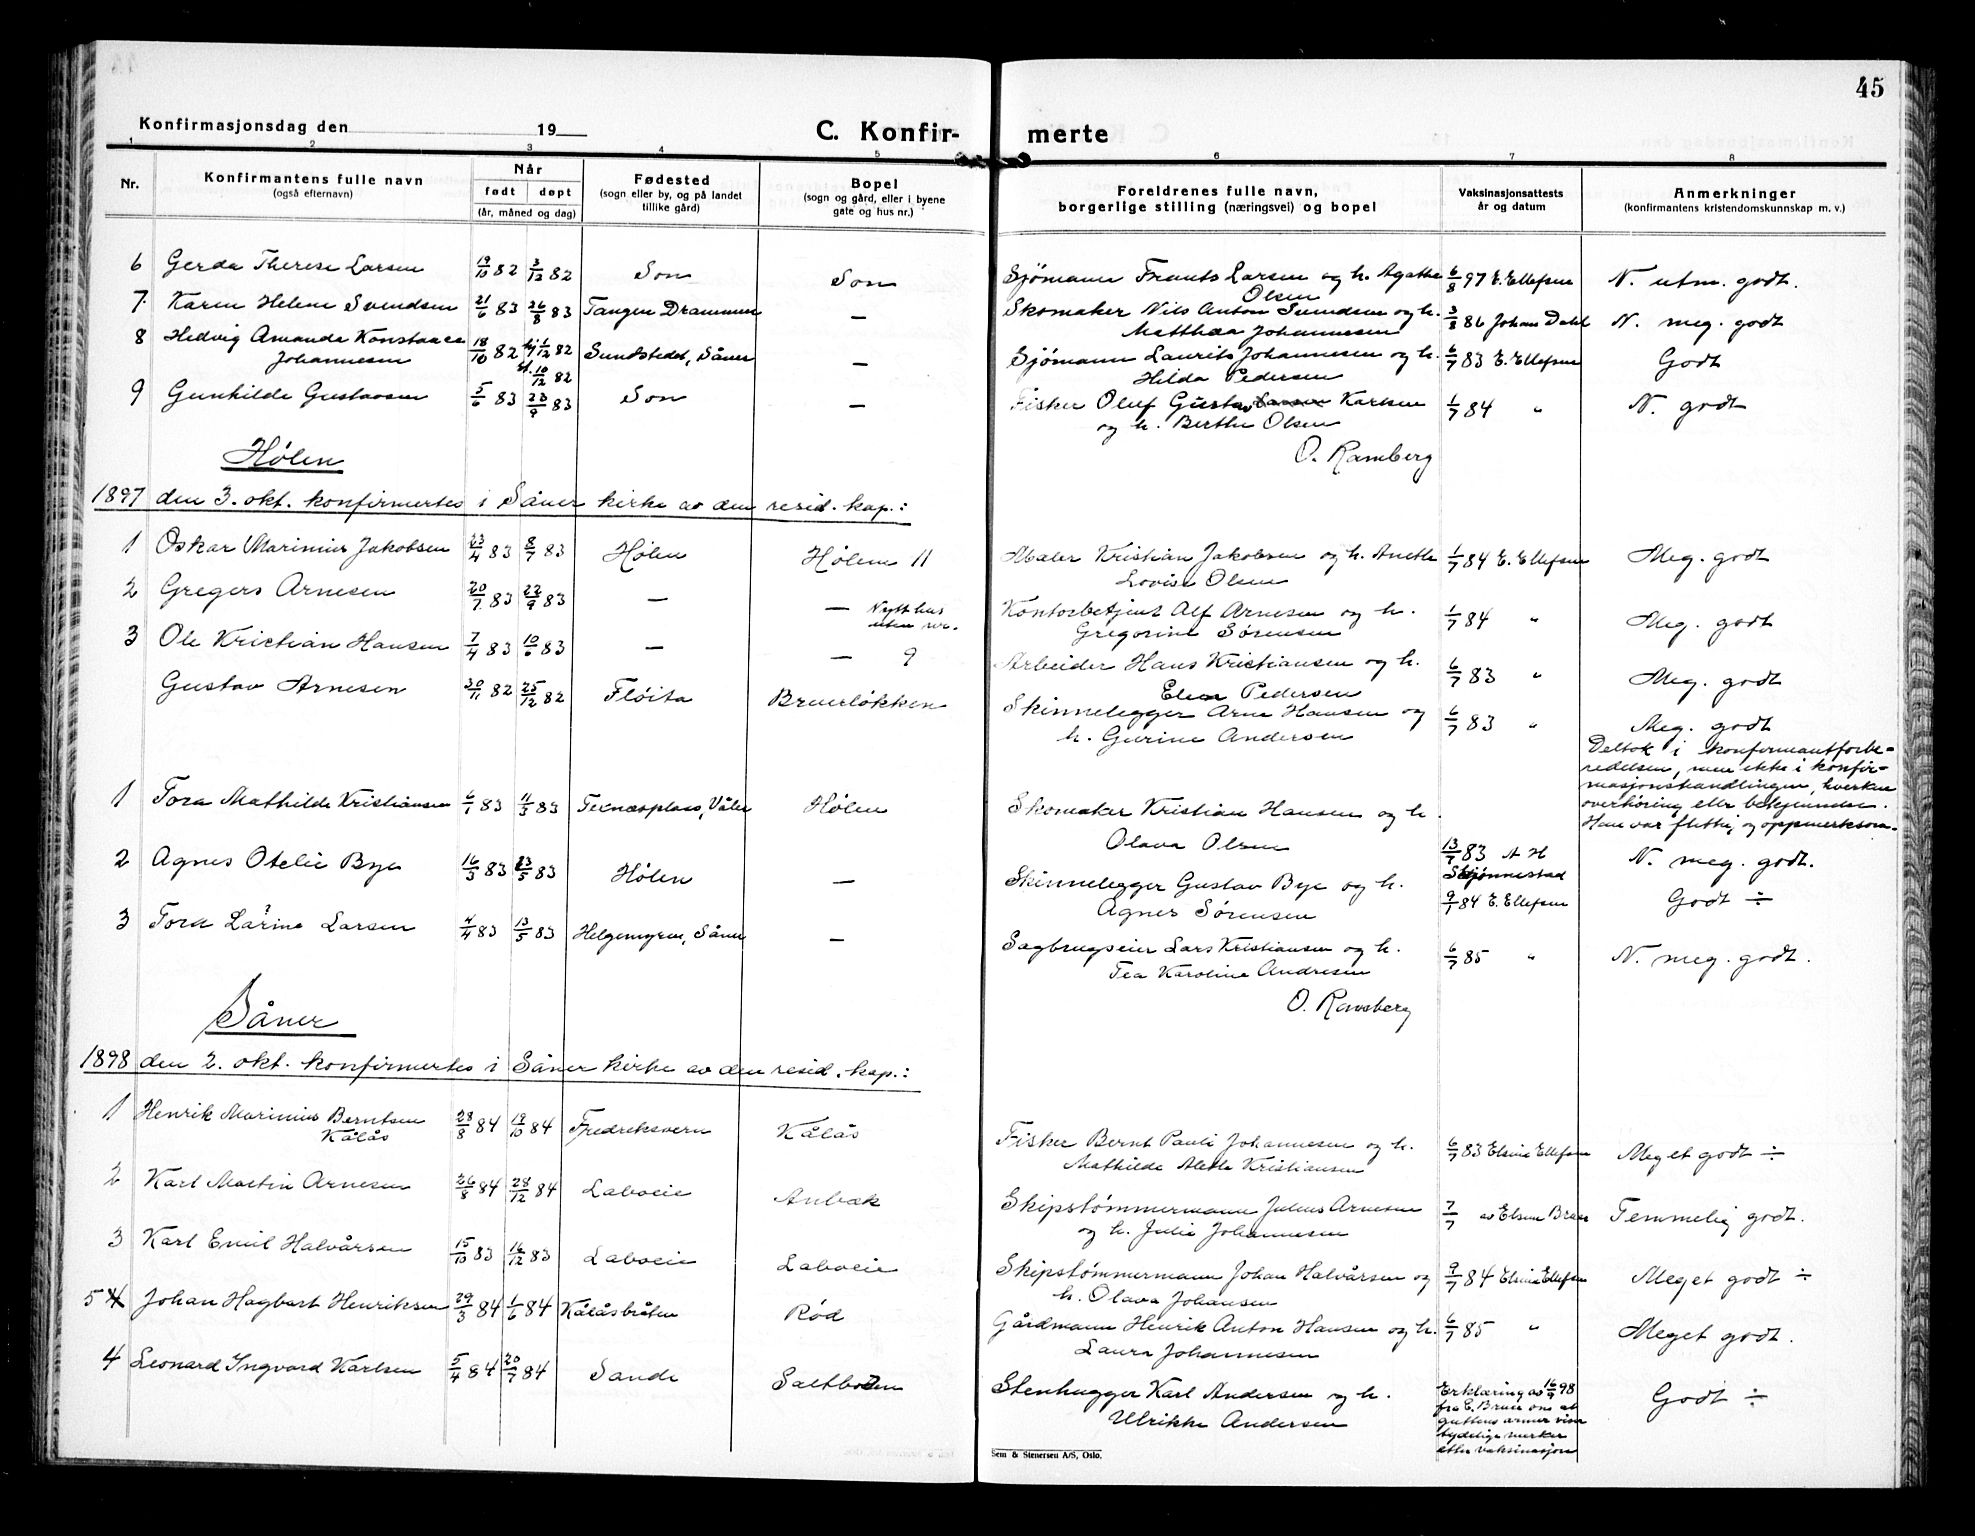 45
Konfirmasjonsdag den 19
C. Konfir- merte
1 2 3 4 5 6 7 8
Nr.
Konfirmantens fulle navn
(også efternavn)
Når
født døpt
(år, måned og dag)
Fødested
(sogn eller by, og på landet
tillike gård)
Bopel
(sogn og gård, eller i byene
gate og hus nr.)
Foreldrenes fulle navn,
borgerlige stilling (næringsvei) og bopel
Vaksinasjonsattests
år og datum
Anmerkninger
(konfirmantens kristendomskunnskap m. v.)
6 Gerda Therese Larsen 19/10 82 3/12 82 Son Son Sjømann Frants Larsen og h. Agathe 6/8 97 E. Ellefsen N. utm. godt.
Olsen
7 Karen Helene Svendsen 21/6 83 26/8 83 Tangen Drammen — Skomaker Nils Anton Svendsen og h. 3/8 86 Johan Dahl N. meg. godt
Matthea Johannesen
8 Hedvig Amanda Konstance 18/10 82 hj. 1/12 82 Sundstedet, Såner — Sjømann Laurits Johannesen og h. 6/7 83 E. Ellefsen Godt
Johannesen 10/12 82 Hilda Pedersen
9 Gunhilde Gustavsen 5/6 83 23/9 83 Son — Fisker Oluf Gustav Larsen Karlsen 1/7 84 " N. godt
og h. Berthe Olsen
O. Ramberg
Hølen
1897 den 3. okt. konfirmertes i Såner kirke av den resid. kap.:
1 Oskar Marinius Jakobsen 23/4 83 8/7 83 Hølen Hølen 11 Maler Kristian Jakobsen og h. Anethe 1/7 84 E. Ellefsen Meg. godt
Lovise Olsen
2 Gregers Arnesen 20/7 83 22/9 83 — — Nytt hus Kontorbetjent Alf Arnesen og h. 1/7 84 " Meg. godt
uten nr. Gregorine Sørensen
3 Ole Kristian Hansen 7/4 83 10/6 83 — — 9 Arbeider Hans Kristiansen og h. 6/7 83 " Meg. godt
Elen Pedersen
Gustav Arnesen 30/11 82 25/12 82 Fløita Bruerløkken Skinnelegger Arne Hansen og 6/7 83 " Meg. godt
h. Gurine Andersen
Deltok i konfirmantforbe-
redelsen, men ikke i konfir-
masjonshandlingen, hverken
overhøring eller bekjennelse.
Han var flittig og oppmerksom.
1 Tora Mathilde Kristiansen 6/1 83 11/3 83 Texnesplass, Våler Hølen Skomaker Kristian Hansen og h. 13/7 83 A H N. meg. godt.
Olava Olsen Skjønnestad
2 Agnes Otelie Bye 16/3 83 23/5 83 Hølen — Skinnelegger Gustav Bye og h. 9/1 84 E. Ellefsen Godt ÷
Agnes Sørensen
3 Tora Larine Larsen 4/4 83 13/5 83 Helgemyren, Såner — Sagbrugseier Lars Kristiansen og h. 6/7 85 " N. meg. godt.
Tea Karoline Andresen
O. Ramberg
Såner
1898 den 2. okt. konfirmertes i Såner kirke av den resid. kap.:
1 Henrik Marinius Berntsen 28/8 84 19/10 84 Fredriksvern Kålås Fisker Bernt Pauli Johannesen og h. 6/7 83 Elsine Ellefsen Meget godt ÷
Kålås Mathilde Alethe Kristiansen
2 Karl Martin Arnesen 26/8 84 28/12 84 Laboeie Anbæk Skipstømmermann Julius Arnesen 7/7 av Elsine Bruer Temmelig godt.
og h. Julie Johannesen
3 Karl Emil Halvårsen 15/10 83 16/12 83 Laboeie Laboeie Skipstømmermann Johan Halvårsen og 9/7 84 Elsine Ellefsen Meget godt ÷
h. Olava Johansen
5 4 Johan Hagbart Henriksen 29/3 84 1/6 84 Kålåsbråten Rød Gårdmann Henrik Anton Hansen og h. 6/7 85 " Meget godt.
Laura Johannesen
4 Leonard Ingvard Karlsen 5/4 84 20/7 84 Sande Saltboden Stenhugger Karl Andersen og h. Erklæring av 16/9 98 Godt ÷
Ulrikke Andersen fra E. Bruer om at
guttens armer viser
tydelige merker
etter vaksinasjon
Sem & Stenersen A/S, Oslo.